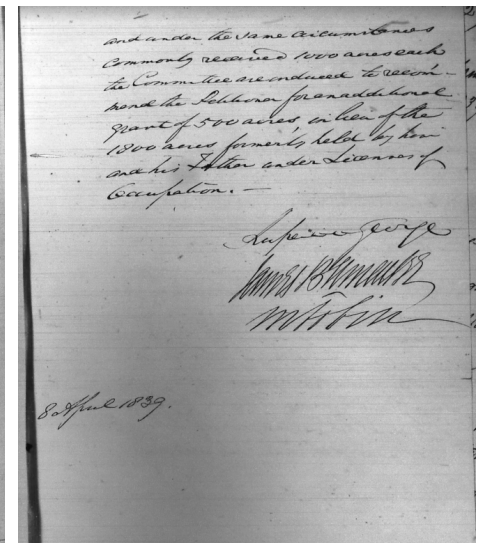 and under the same circumstances
commonly received 1000 acres each
the Committee are induced to recom-
mend the Petitioner for an additional
grant of 500 acres in lieu of the
1800 acres formerly held by him
and his Father under Licenses of
Occupation. —
Rupert D George
James B Uniacke
M Tobin
8 April 1839.